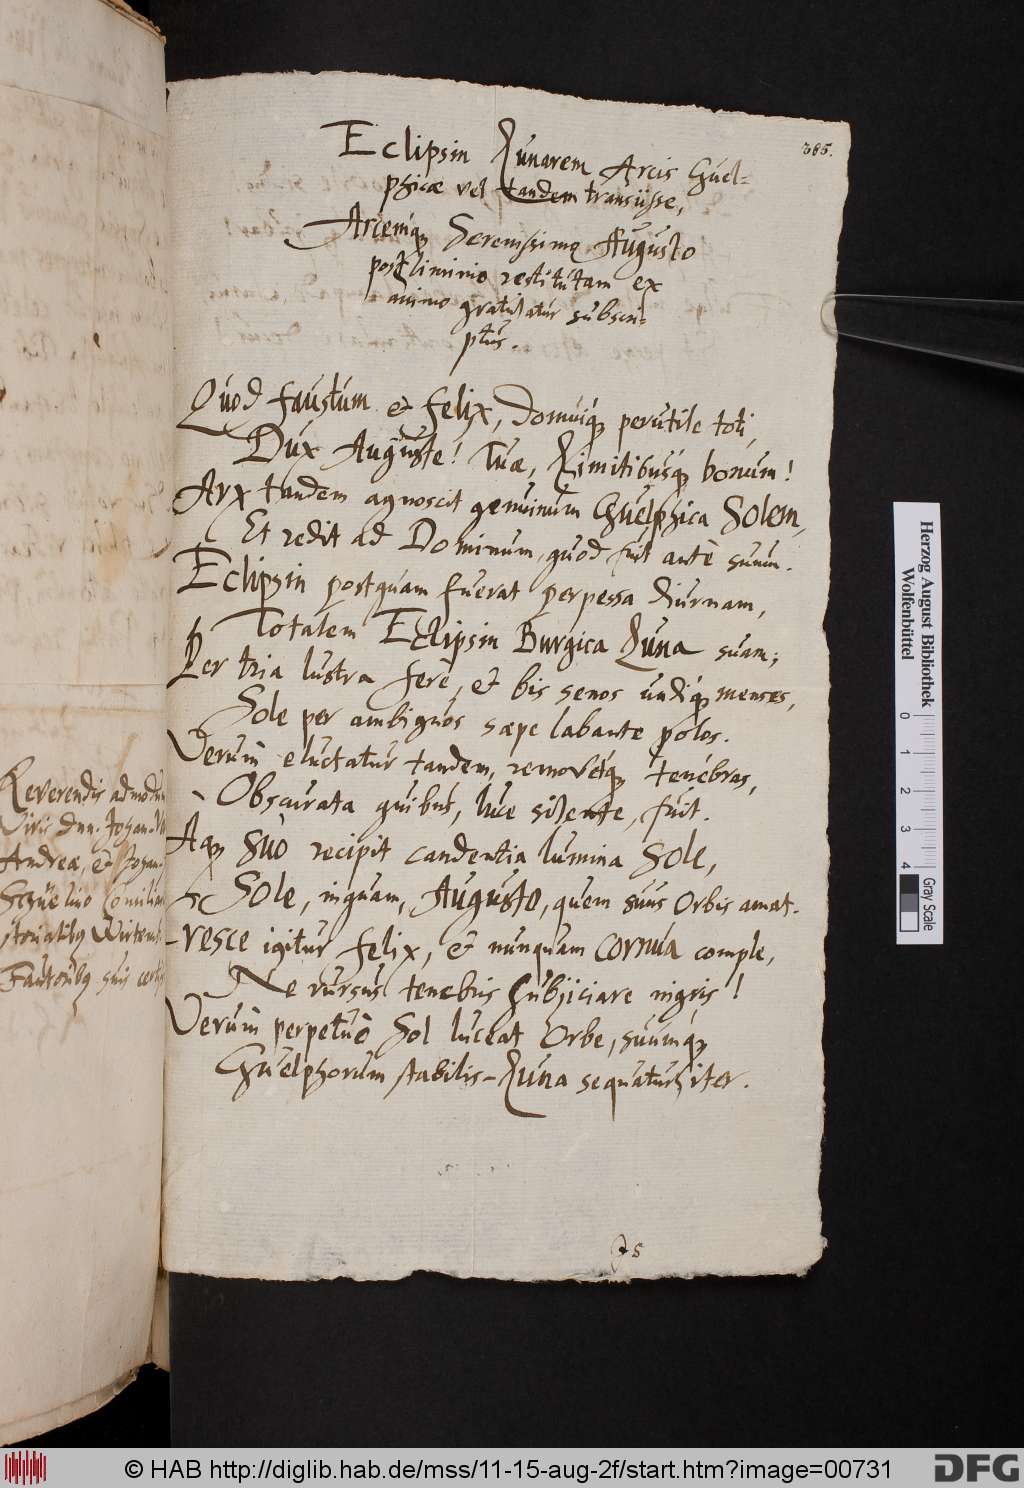 385.
Eclipsin Lunarem Arcis Guel=
phicæ vel tandem transiisse,
Arcemq́ Serenissimo Augusto
postliminio restitutam ex
animo gratulatur subscri=
ptus.
Quod faustum & felix, domuiq́ perutile toti,
Dux Auguste! tuæ, limitibusq́ bonum!
Arx tandem agnoscit genuinum Guelphica Solem,
Et redit ad Dominum, quod fuit antè suum.
Eclipsin postquam fuerat perpessa diurnam,
Totalem Eclipsin Burgica Luna suam;
Per tria lustra ferè, & bis senos undiq́ menses,
Sole per ambiguos sæpe labante polos.
Verùm eluctatur tandem, removetq́ tenebras,
Obscurata quibus, luce silente, fuit.
Aq́ suò recipit candentia lumina Sole,
Sole, inquam, Augusto, quem suus Orbis amat.
resce igitur felix, & nunquam cornua comple,
Ne rursus tenebris subjiciare nigris!
Verùm perpetuò Sol luceat Orbe, suumq́
Guelphorum stabilis Luna sequatur iter.
Reverendis admodum
Viris Dnn. Johan. V
Andreæ, & Johan.
Schuelino Consilia
storialibq Wirtemb
Fautoribq suis cert
Herzog August Bibliothek
Wolfenbüttel
0 1 2 3 4
Gray Scale
© HAB http://diglib.hab.de/mss/11-15-aug-2f/start.htm?image=00731
DFG